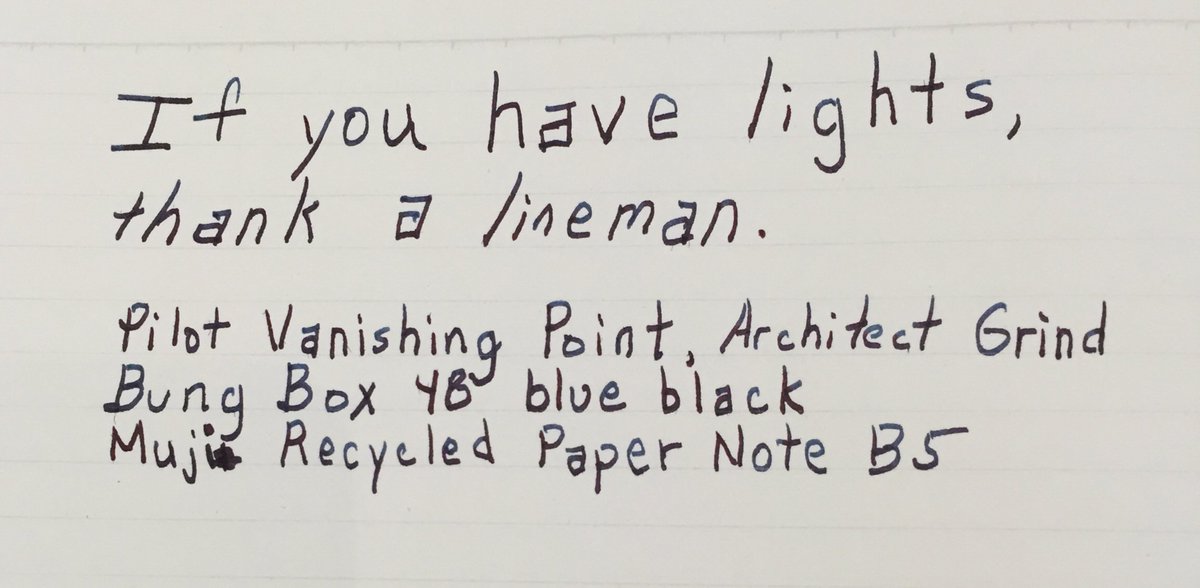 If you have lights,
thank a lineman.
Pilot Vanishing Point, Architect Grind
Bung Box 4B blue black
Muji Recycled Paper Note B5